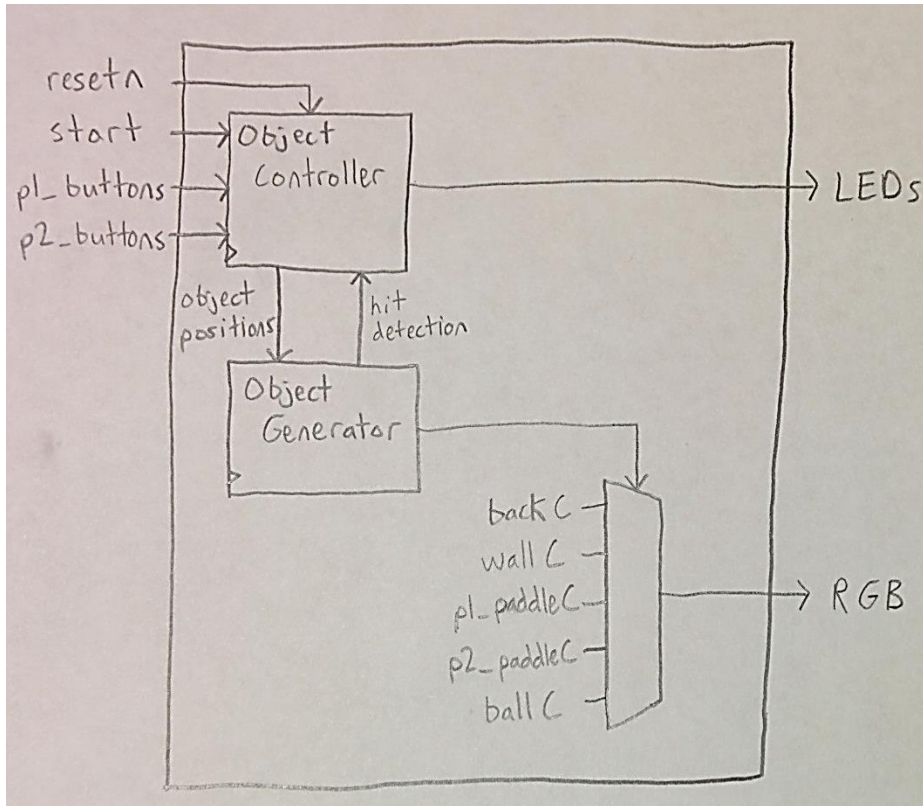 resetn
start
p1_buttons
p2_buttons
Object
Controller
LEDs
object
positions
hit
detection
Object
Generator
back C
wall C
p1_paddleC
p2_paddleC
ball C
RGB